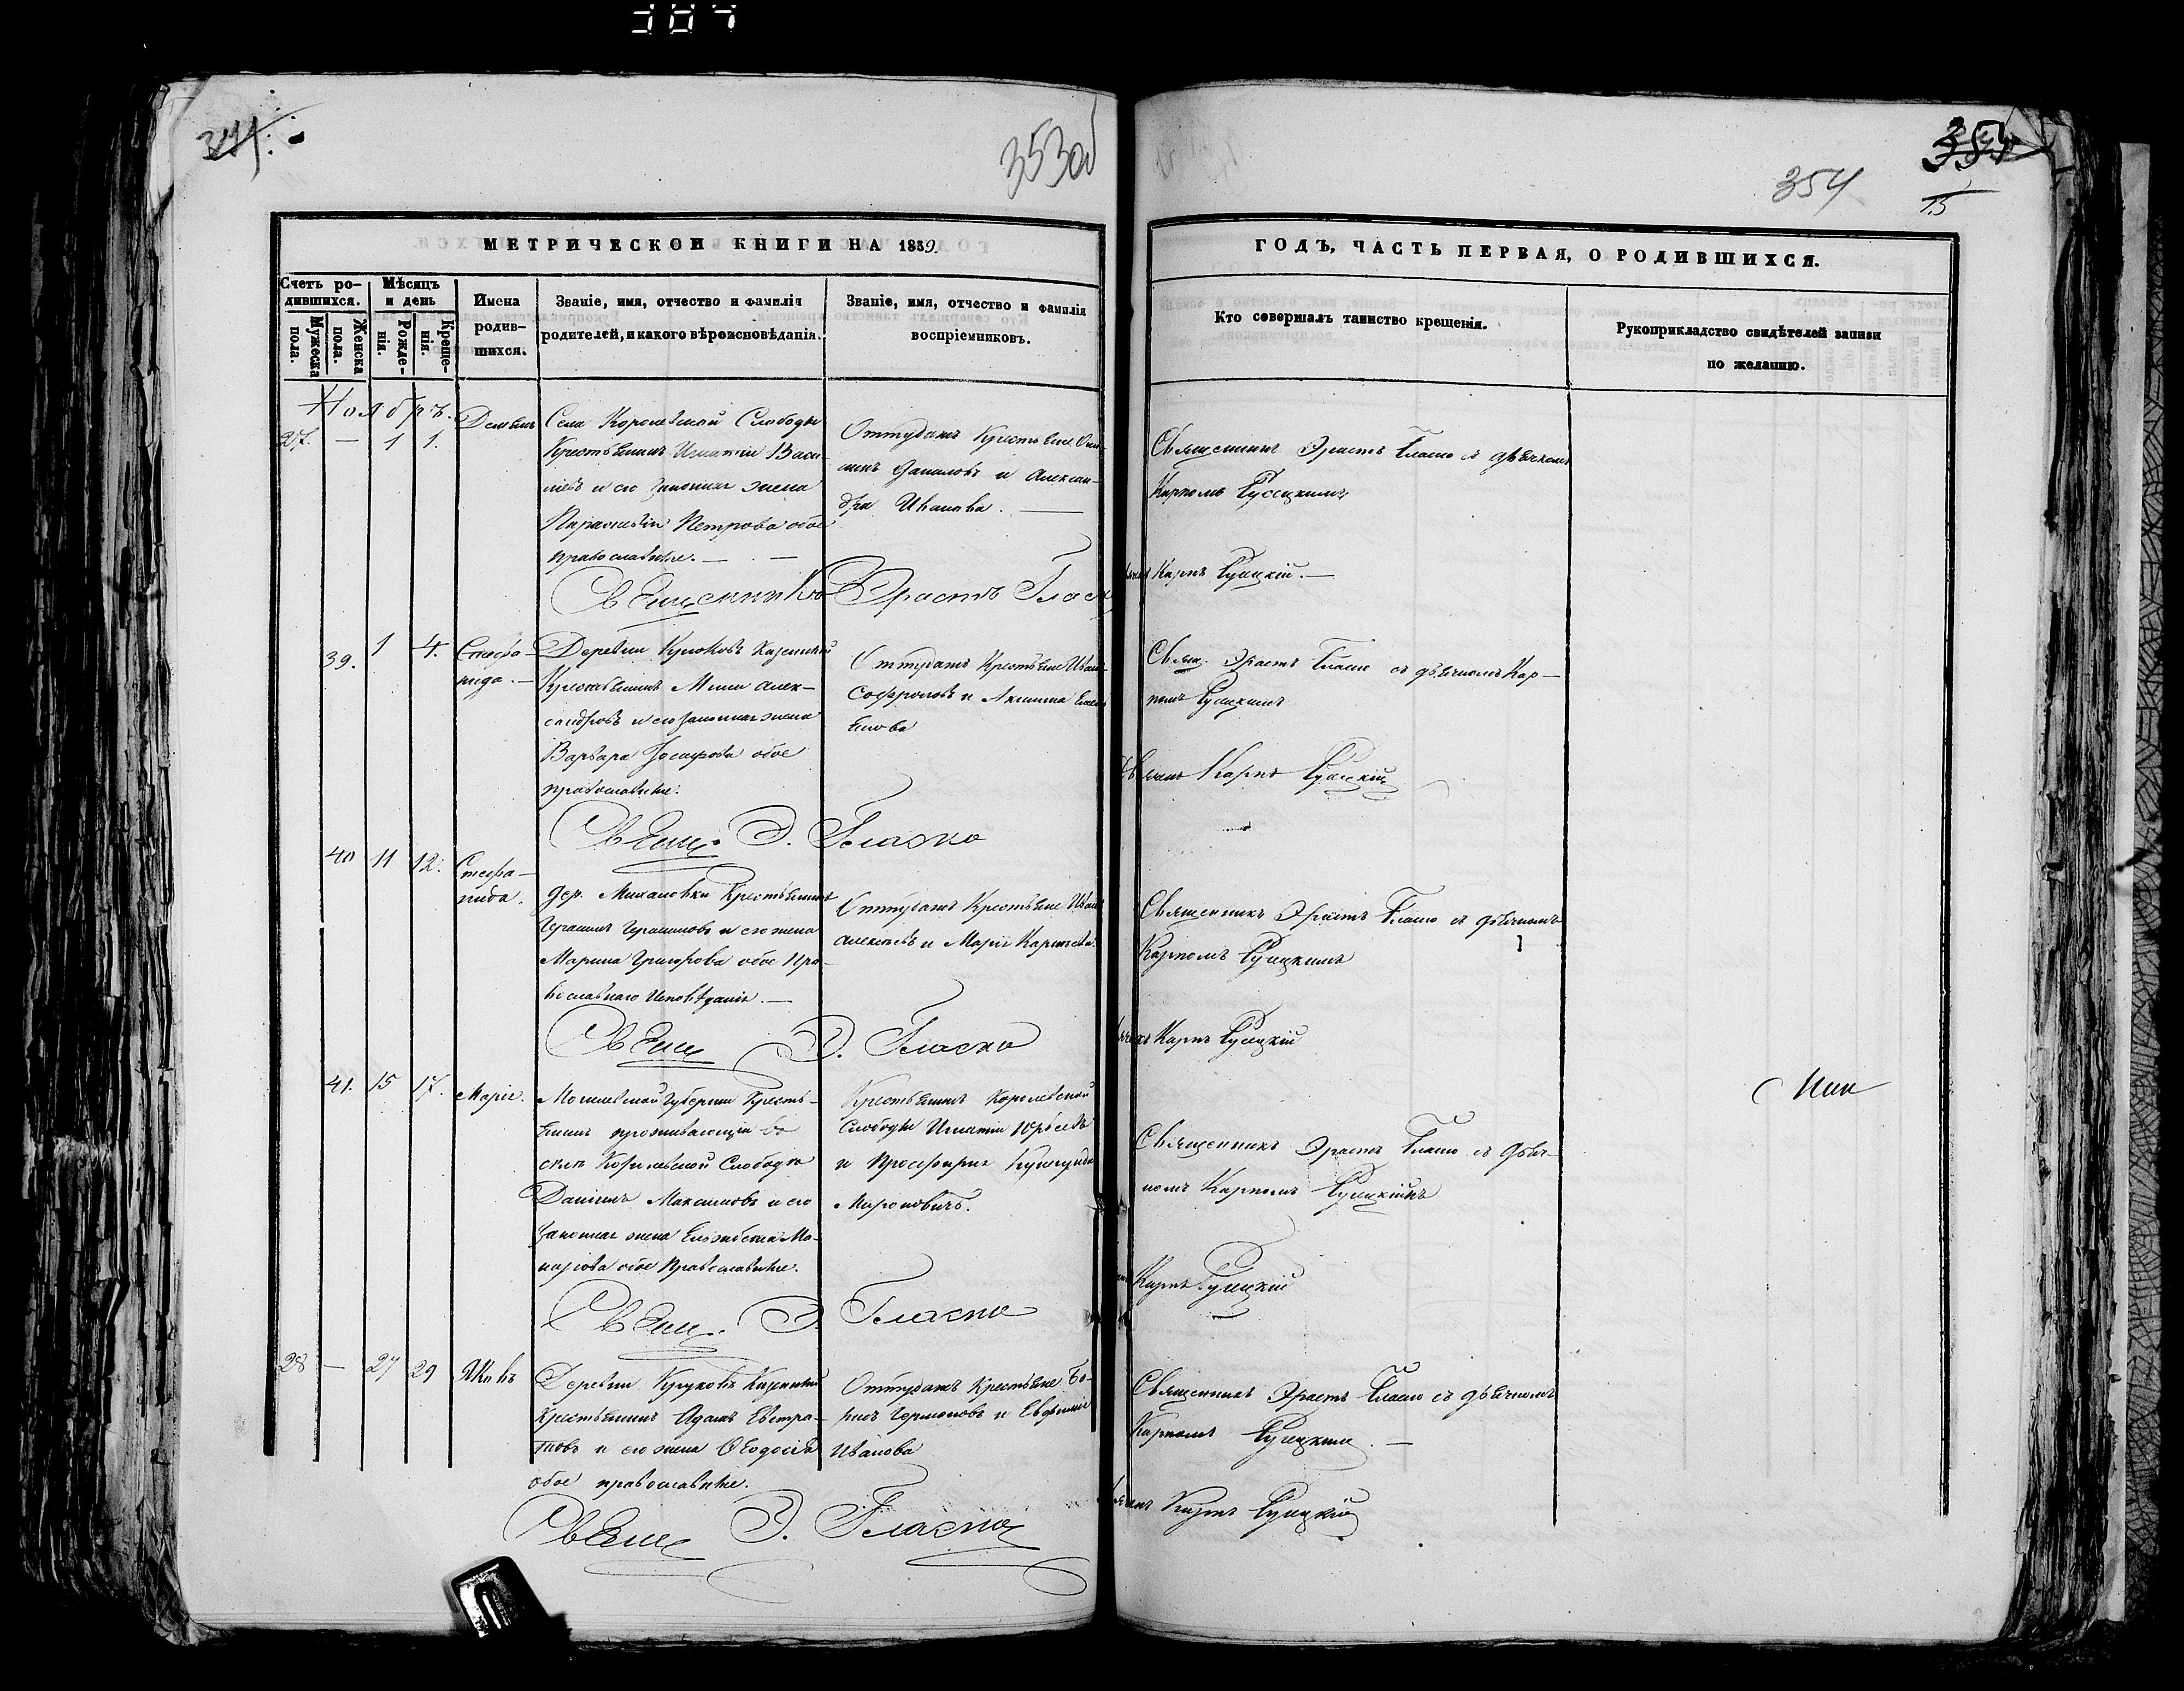 307
353об
354
15
МЕТРИЧЕСКОЙ КНИГИ НА 1859.
ГОДЪ, ЧАСТЬ ПЕРВАЯ, О РОДИВШИХСЯ.
Счетъ родившихся.
Мужеска пола.
Женска пола.
Мѣсяцъ и день
Рожденія.
Крещенія.
Имена родившихся.
Званіе, имя, отчество и фамилія
родителей, и какого вѣроисповѣданія.
Званіе, имя, отчество и фамилія
воспріемниковъ.
Кто совершалъ таинство крещенія.
Рукоприкладство свидѣтелей записи
по желанію.
Ноябрь.
27. — 1 1.
Села Королевской Слободы
Крестьянинъ Игнатій Васи-
льевъ и его законная жена
Параскевія Петрова обое
православные. —
Оттудажъ Крестьяне
Данилова и Алексан-
дра Иванова. —
Священникъ Эрастъ Гласко съ дьячкомъ
Карпомъ Русецкимъ
Карпъ Русецкій. —
Священникъ Эрастъ Гласко
39. 1 4. Стефа-
нида. —
Деревни Крюковъ Казенный
Крестьянинъ Алек-
сандровъ и его законная жена
Варвара Іосифова обое
православные.
Оттудажъ Крестьяне Иванъ
Софроновъ и Акилина Емель-
янова
Свящ. Эрастъ Гласко съ дьячкомъ Кар-
помъ Русецкимъ
Дьячекъ Карпъ Русецкій
Свящ. Э. Гласко
40 11 12. Стефа-
нида.
Дер. Михаловки Крестьянинъ
Герасимъ Герасимовъ и его жена
Марина Григорова обое Пра-
вославнаго Исповѣданія. —
Оттудажъ Крестьяне Иванъ
Алексѣевъ и Марія
Священникъ Эрастъ Гласко съ дьячкомъ
Карпомъ Русецкимъ
Карпъ Русецкій
Свящ Э. Гласко
41. 15 17. Марія.
Могилевской Губерніи Кресть-
янинъ проживающій въ
селѣ Королевской Слободѣ
Даніилъ Максимовъ и его
законная жена Елизавета Ма-
карова обое Православные.
Крестьянинъ Королевской
Слободы Игнатій Юрьевъ
и Просфирня
Мироновичъ.
Священникъ Эрастъ Гласко съ дьяч-
комъ Карпомъ Русецкимъ
Карпъ Русецкій
Свящ. Э. Гласко
28 — 27 29 Яковъ
Деревни Крюковъ Казенный
Крестьянинъ Адамъ Евстра-
товъ и его жена Ѳеодосія
обое православные.
Оттудажъ Крестьяне Бо-
рисъ и Евфимія
Иванова
Священникъ Эрастъ Гласко съ дьячкомъ
Карпомъ Русецкимъ. —
Карпъ Русецкій
Свящ Э. Гласко